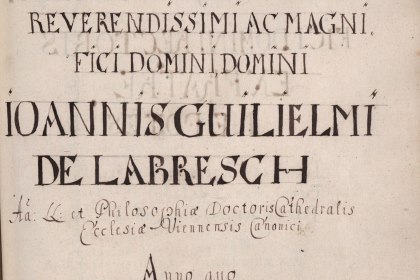 REVERENDISSIMI AC MAGNI
FICI DOMINI DOMINI
IOANNIS GUILIELMI
DE LABRESCH
et Philosophiæ Doctoris Cathedralis
Ecclesiæ Viennensis Canonici
Anno quo